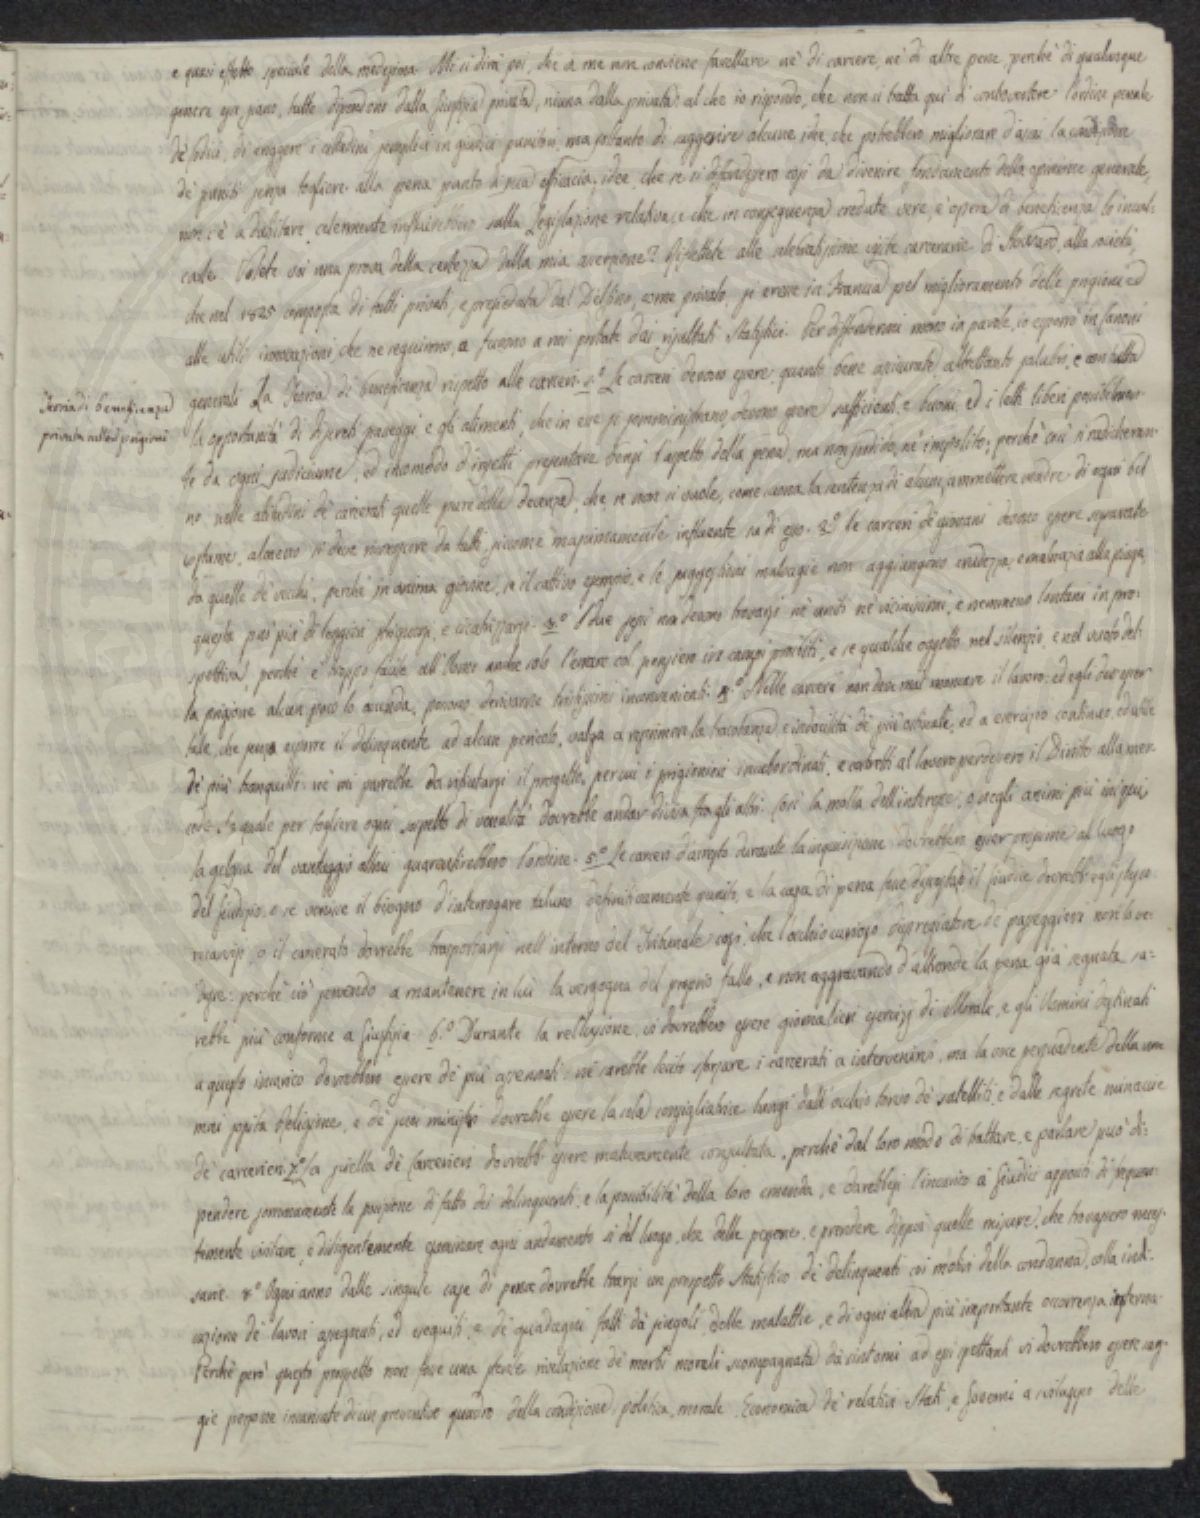 e quasi effetto speciale della medesima. Mi si dirà poi, che a me non conviene favellare nè di carcere, nè di altre pene, perchè di qualunque
genere esse siano, tutte dipendono dalla Giustizia privata, niuna dalla privata: al che io rispondo, che non si tratta qui di controvertere l'ordine penale
de' Codici, di erigere i cittadini semplici in giudici punitori, ma soltanto di suggerire alcune idee, che potrebbero migliorare d'assai la condizione
de' puniti senza togliere alla pena punto di sua efficacia; idee, che se si diffondessero così da divenire fondamento della opinione generale,
non c'è a dubitare, celermente influirebbero sulla Legislazione relativa, e che in conseguenza credute vere, è opera di beneficenza lo incul-
carle. Volete voi una prova della certezza della mia asserzione? Riflettete alle celebratissime visite carcerarie di Howard, alla società,
che nel 1825 composta di tutti privati, e presieduta dal Delfino, come privato, si eresse in Francia pel miglioramento delle prigioni ed
alle utili innovazioni, che ne seguirono, e furono a noi portate dai risultati Statistici. Per diffondermi meno in parole, io esporrò in Canoni
generali La Teoria di beneficenza rispetto alle carceri. 1.º Le carceri devono essere quanto bene assicurate altrettanto salubri, e con tutta
Teoria di beneficenza
privata nelle prigioni
la opportunità di discreti passeggi e gli alimenti, che in esse si somministrano, devono essere sufficienti, e buoni, ed i letti liberi possibilmen-
te da ogni sudiciume, ed incomodo d'insetti presentare bensì l'aspetto della pena, ma non sordido, nè impolito; perchè così si radicheran-
no nelle abitudini de' carcerati quelle pure della decenza, che, se non si vuole, come suona la sentenza di alcuni, ammettere madre di ogni bel
costume, almeno si deve riconoscere da tutti, siccome massimamente influente su di esso. 2.º Le carceri de' giovani devono essere separate
da quelle de' vecchi, perchè in anima giovine, se il cattivo esempio, e le suggestioni malvagie non aggiungono crudezza, e malvagia alla piaga,
questa può più di leggieri stringersi, e cicatrizzarsi. 3.º I due sessi non devono trovarsi nè uniti nè vicinissimi, e nemmeno lontani in pro-
spettiva, perchè è troppo facile all'Uomo anche solo l'errare col pensiero in campi proibiti, e se qualche oggetto nel silenzio, e nel vuoto del-
la prigione alcun poco lo accenda, possono derivarne tristissimi inconvenienti. 4.º Nelle carceri non deve mai mancare il lavoro: ed egli dev'esser
tale, che senza esporre il delinquente ad alcun pericolo, valga a reprimere la tracotanza e indocilità de' più ostinati, ed a esercizio continuo, ed utile
de' più tranquilli: nè mi parrebbe da rifiutarsi il progetto, per cui i prigionieri insubordinati, e cattivi al lavoro perdessero il Diritto alla mer-
cede, la quale per togliere ogni sospetto di venalità dovrebbe andar divisa fra gli altri. Così la molla dell'interesse, e negli animi più iniqui
la gelosia del vantaggio altrui guarentirebbero l'ordine. 5.º Le carceri d'arresto durante la inquisizione dovrebbero esser prossime al luogo
del giudizio, e se venisse il bisogno d'interrogare taluno definitivamente punito, e la casa di pena fosse discosta, il giudice dovrebb'egli stesso
recarvisi, o il carcerato dovrebbe trasportarsi nell'interno del Tribunale così, che l'occhio curioso dispregiatore de' passeggieri non lo ve-
desse: perchè ciò servendo a mantenere in lui la vergogna del proprio fallo, e non aggravando d'altronde la pena già segnata sa-
rebbe più conforme a Giustizia. 6.º Durante la reclusione, vi dovrebbero essere giornalieri esercizj di Morale, e gli Uomini destinati
a questo incarico dovrebbero essere de' più assennati: nè sarebbe lecito sforzare i carcerati a intervenirvi, ma la voce persuadente della umi
Religione, e de' suoi ministri dovrebbe essere la sola consigliatrice lungi dall'occhio torvo de' satelliti, e dalle segrete minaccie
de' carcerieri. 7.º La scelta de' Carcerieri dovrebb'essere maturamente consultata, perchè dal loro modo di trattare, e parlare può di-
pendere sommamente la posizione di fatto dei delinquenti, e la possibilità della loro emenda, e darebbesi l'incarico a' Giudici appositi di frequen-
temente visitare, e diligentemente esaminare ogni andamento sì del luogo, che delle persone, e prendere dappoi quelle misure, che trovassero neces-
sarie. 8.º Ogni anno dalle singole case di pena dovrebbe trarsi un prospetto Statistico de' delinquenti coi motivi della condanna, colla indi-
cazione de' lavori assegnati, ed eseguiti, e de' guadagni fatti da' singoli, delle malattie, e di ogni altra più importante occorrenza interna.
Perchè però questo prospetto non fosse una sterile rivelazione de' morbi morali scompagnata da' sintomi ad essi spettanti vi dovrebbero essere sag-
gie persone incaricate di un preventivo quadro della condizione politica, morale, Economica de' relativi Stati, e Governi a sviluppo delle